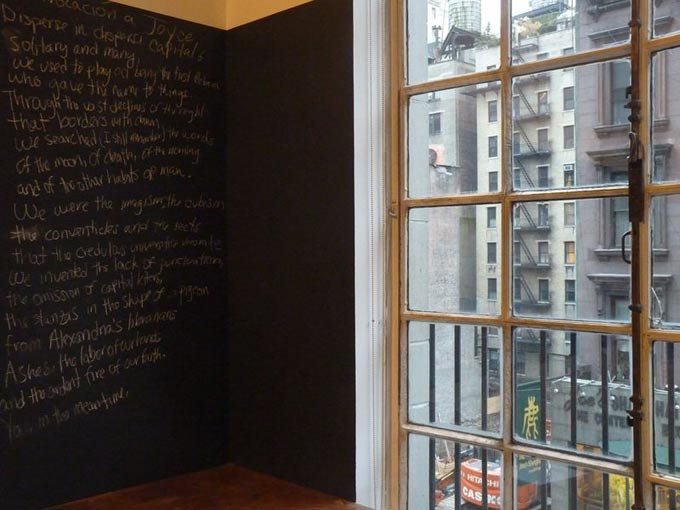 Invocación a Joyce
Disperse in dispersed Capitals
Solitary and many
We used to play at being the first Adam
who gave the name to things.
Through the vast declines of the night
that borders with dawn,
we searched (I still remember) the words
of the moon, of death, of the morning
and of the other habits of man.
We were the imagism, the cubism
the conventicles and the sects
that the credulous universities
We invented the lack of punctuation,
the omission of capital letters,
the stanzas in the shape of pigeon
from Alexandria's librarians
Ashes the labor of our hands
and the ardent fire of our faith.
You in the meantime,
HITACHI